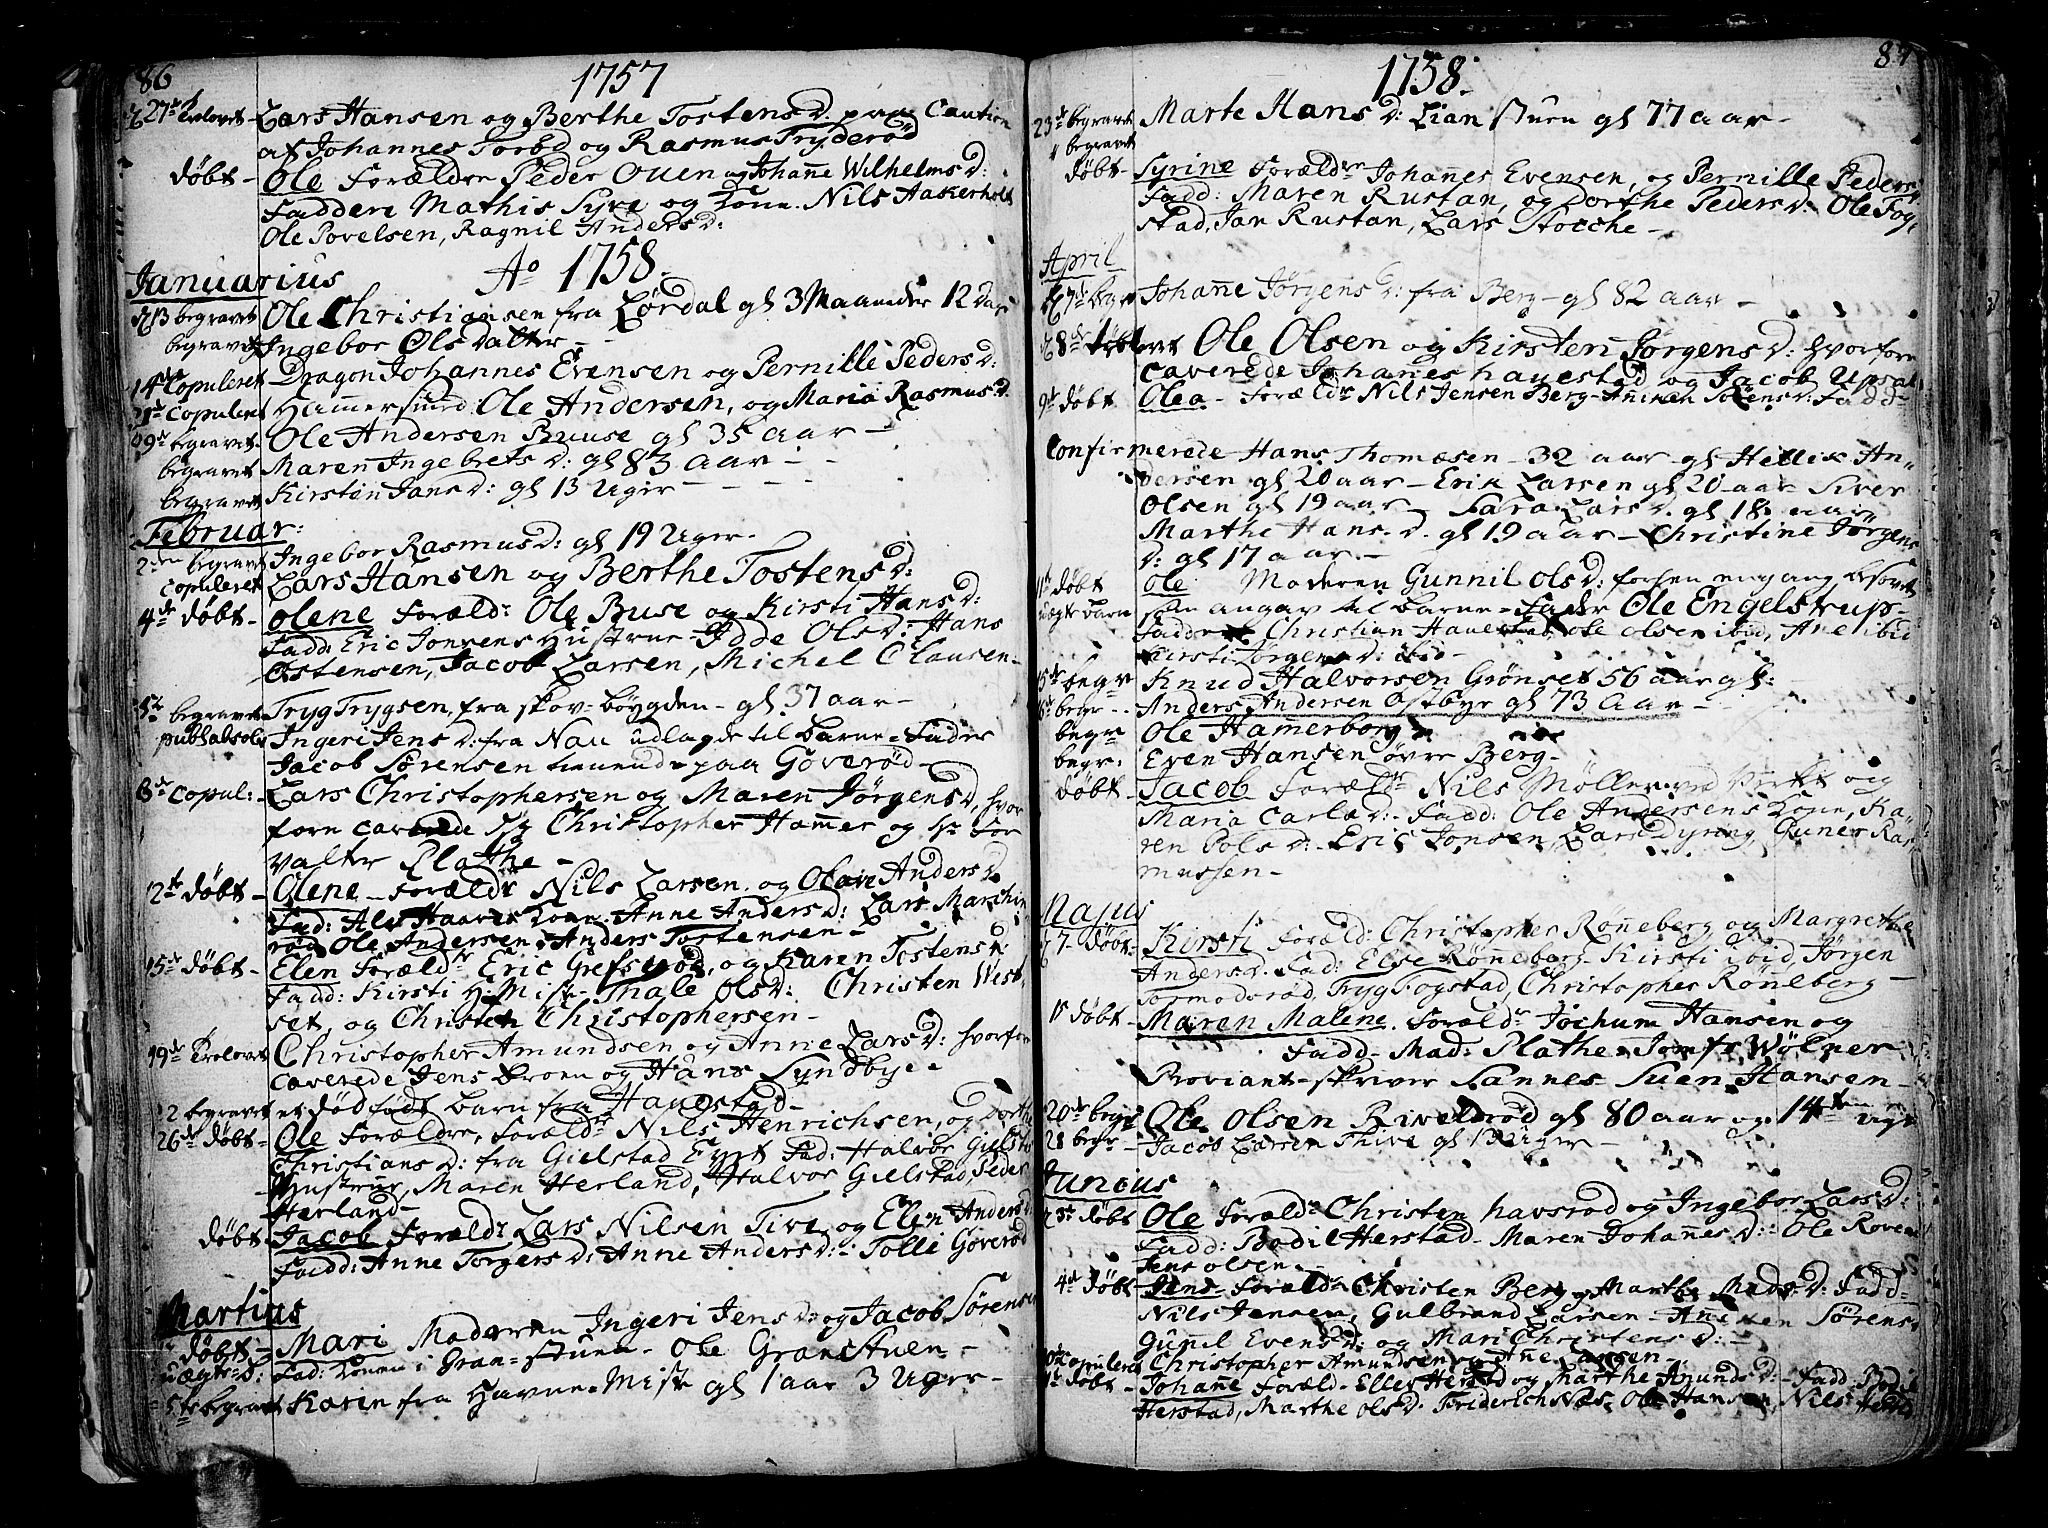 86
1757
27de trolovet Lars Hansen og Berthe Tostens D. paa Caution
af Johannes Torbd og Rasmus Tryderød
døbt - Ole Forældre Peder Ouen og Johañe Wilhelms D:
Faddere Mathis Syre og Kone. Nils Aakerholt
Ole Povelsen, Ragnil Anders D:
Januarius Ao 1758.
13 begravet Ole Christiansen fra Lørdal gl 3 Maaneder 12 Dage
begravet Ingebor Ols Datter -
14de Copuleret Dragon Johannes Evensen og Pernille Peders D:
Copuleret Ole Andersen, og Maria Rasmus D.
begravet Ole Andersen Buuse gl 35 aar -
begravet Maren Ingebrets D: gl 83 Aar -
begravet Kirsten Jans D: gl 13 Uger - - -
Februar:
2den begravet Ingebor Rasmus D: gl 19 Uger -
copuleret Lars Hansen og Berthe Tostens D:
4de døbt - Olene Foræld: Ole Buse og Kirsti Hans D:
Fadd: Eric Jonsens Hustrue - Idde Ols D: Hans
Ostensen, Jacob Larsen, Michel Clausen -
5te begravet Tryg Trygsen fra skov-bøygden - gl 37 aar -
publ: absolv Ingeri Jens D: fra Nau udlagde til barne-Fader
Jacob Sørensen paa Goverød -
8de copul: - Lars Christophersen og Maren Jørgens D, hvor
forn caverede Christopher Hamer og Hr For
valter Plathe -
12te døbt - Olene - Foræld: Nils Larsen og Olave Anders D.
Fad: Kone. Anne Anders D: Lars
Ole Andersen, Anders Tostensen -
15de døbt - Elen Foræld: Eric Grefsrød, og Karen Tostens D:
Fadd: Kirsti H: Misk - Thale Ols D: Christen West
set, og Christen Christophersen -
19de trolovet Christopher Amundsen og Anne Lars D: hvorfor
caverede Jens Broen og Hans Syndbye -
22 begravet et dødfødt barn fra Hauestad -
26de døbt - Ole Forældre, Foræld: Nils Henrichsen, og Dorthe
Christians D: fra Gielstad Fad: Halvor Gielstads
Hustrue, Maren Herland, Halvor Gielstad, Peder
Herland -
døbt - Jacob Foræld: Lars Nilsen Tive og Elen Anders D:
Fadd: Anne Torgers D: Anne Anders D: - Tolle Goverød
Martius
døbt - Mari Moderen Ingeri Jens D: og Jacob Sørensen
uægte D: Fad: Konen i Gran-stuen - Ole Granstuen -
5te begravet Karen fra Havne-Misk gl 1 aar 3 Uger -
1758.
87
23de begravet Marte Hans D: Lian stuen gl 77 aar -
begravet
døbt - Syrine Foræld: Johannes Evensen, og Pernille Peders D.
Fadd: Maren Rustan, og Dorthe Peders D: Ole Fog,
stad, Jan Rustan, Lars Stocche -
April
7de begr Johañe Jørgens D: fra Berg - gl 82 aar -
8de trolovet Ole Olsen og Kirsten Jørgens D: hvorforn
caverede Johañes hauestad og Jacob Upsal
9de døbt Olea - Foræld: Nils Jensen Berg - Sørens D: Fadd
Confirmerede Hans Thomæsen - 32 aar gl Hellik An-
dersen gl 20 aar - Erik Larsen gl 20 aar Siver
Olsen gl 19 aar - Sara Lars D. gl 18 aar
Marthe Hans D. gl 19 aar - Christine Jørgens
D: gl 17 aar. -
døbt Ole Moderen Gunnil Ols D: forhen engang besovet
uægte barn hun angav til barne-Fader Ole Engelstrup -
Faddere Christian Hauestad, ole olsen ibid, Ane ibid
Kirsti Jørgens D: ibid -
15de begr Knud Halvorsen Grønset 56 aar gl:
begr - Anders Andersen Ostbye gl 73 Aar -
begr Ole Hamerborg
begr: Even Hansen øvre Berg -
døbt - Jacob Foræld: Nils Møller ved og
Maria Carls D: - Fadd: Ole Andersens Kone, Ka-
ren Pols D: - Eric Jonsen, Lars Dyring, Guner Ras
mussen -
Majus
7 - døbt - Kirsti Foræld: Christopher Røñeberg og Margrethe
Anders D. Fad: Else Røñeberg - Kirsti ibid, Jørgen
Tormodsrød, Tryg Fogstad, Christopher Røñeberg
døbt - Maren Malene. Foræld: Jochum Hansen og
Fadd - Mad: Plathe - Jomfr Wølner
Proviant-skriver Sannes - Suen Hansen -
20de begr Ole Olsen Riveldrød gl 80 aar og 14ten uger
28 begr - Jacob Larsen Thive gl 13 Uger -
Junius
døbt Ole Foræld: Christen havsrød og Ingebor Lars D:
Fadd: Bodil Herstad - Maren Johañes D: - Ole Roven
Jens olsen -
4de døbt Jens - Foræld: Christen Berg og Marthe Mads D: Fadd
Nils Jensen, Gulbrand Larsen - Sørens D
Guñil Evens D: og Mari Christens D: -
Copuleret Christopher Amundsen og Añe Larsen -
døbt - Johañe Foræld - Ellef Herstad og Marthe Amunds D: - Fadd Bodil
Herstad, Marthe ols D: Friderich Næs - Ole Hansen, Nils Herstad